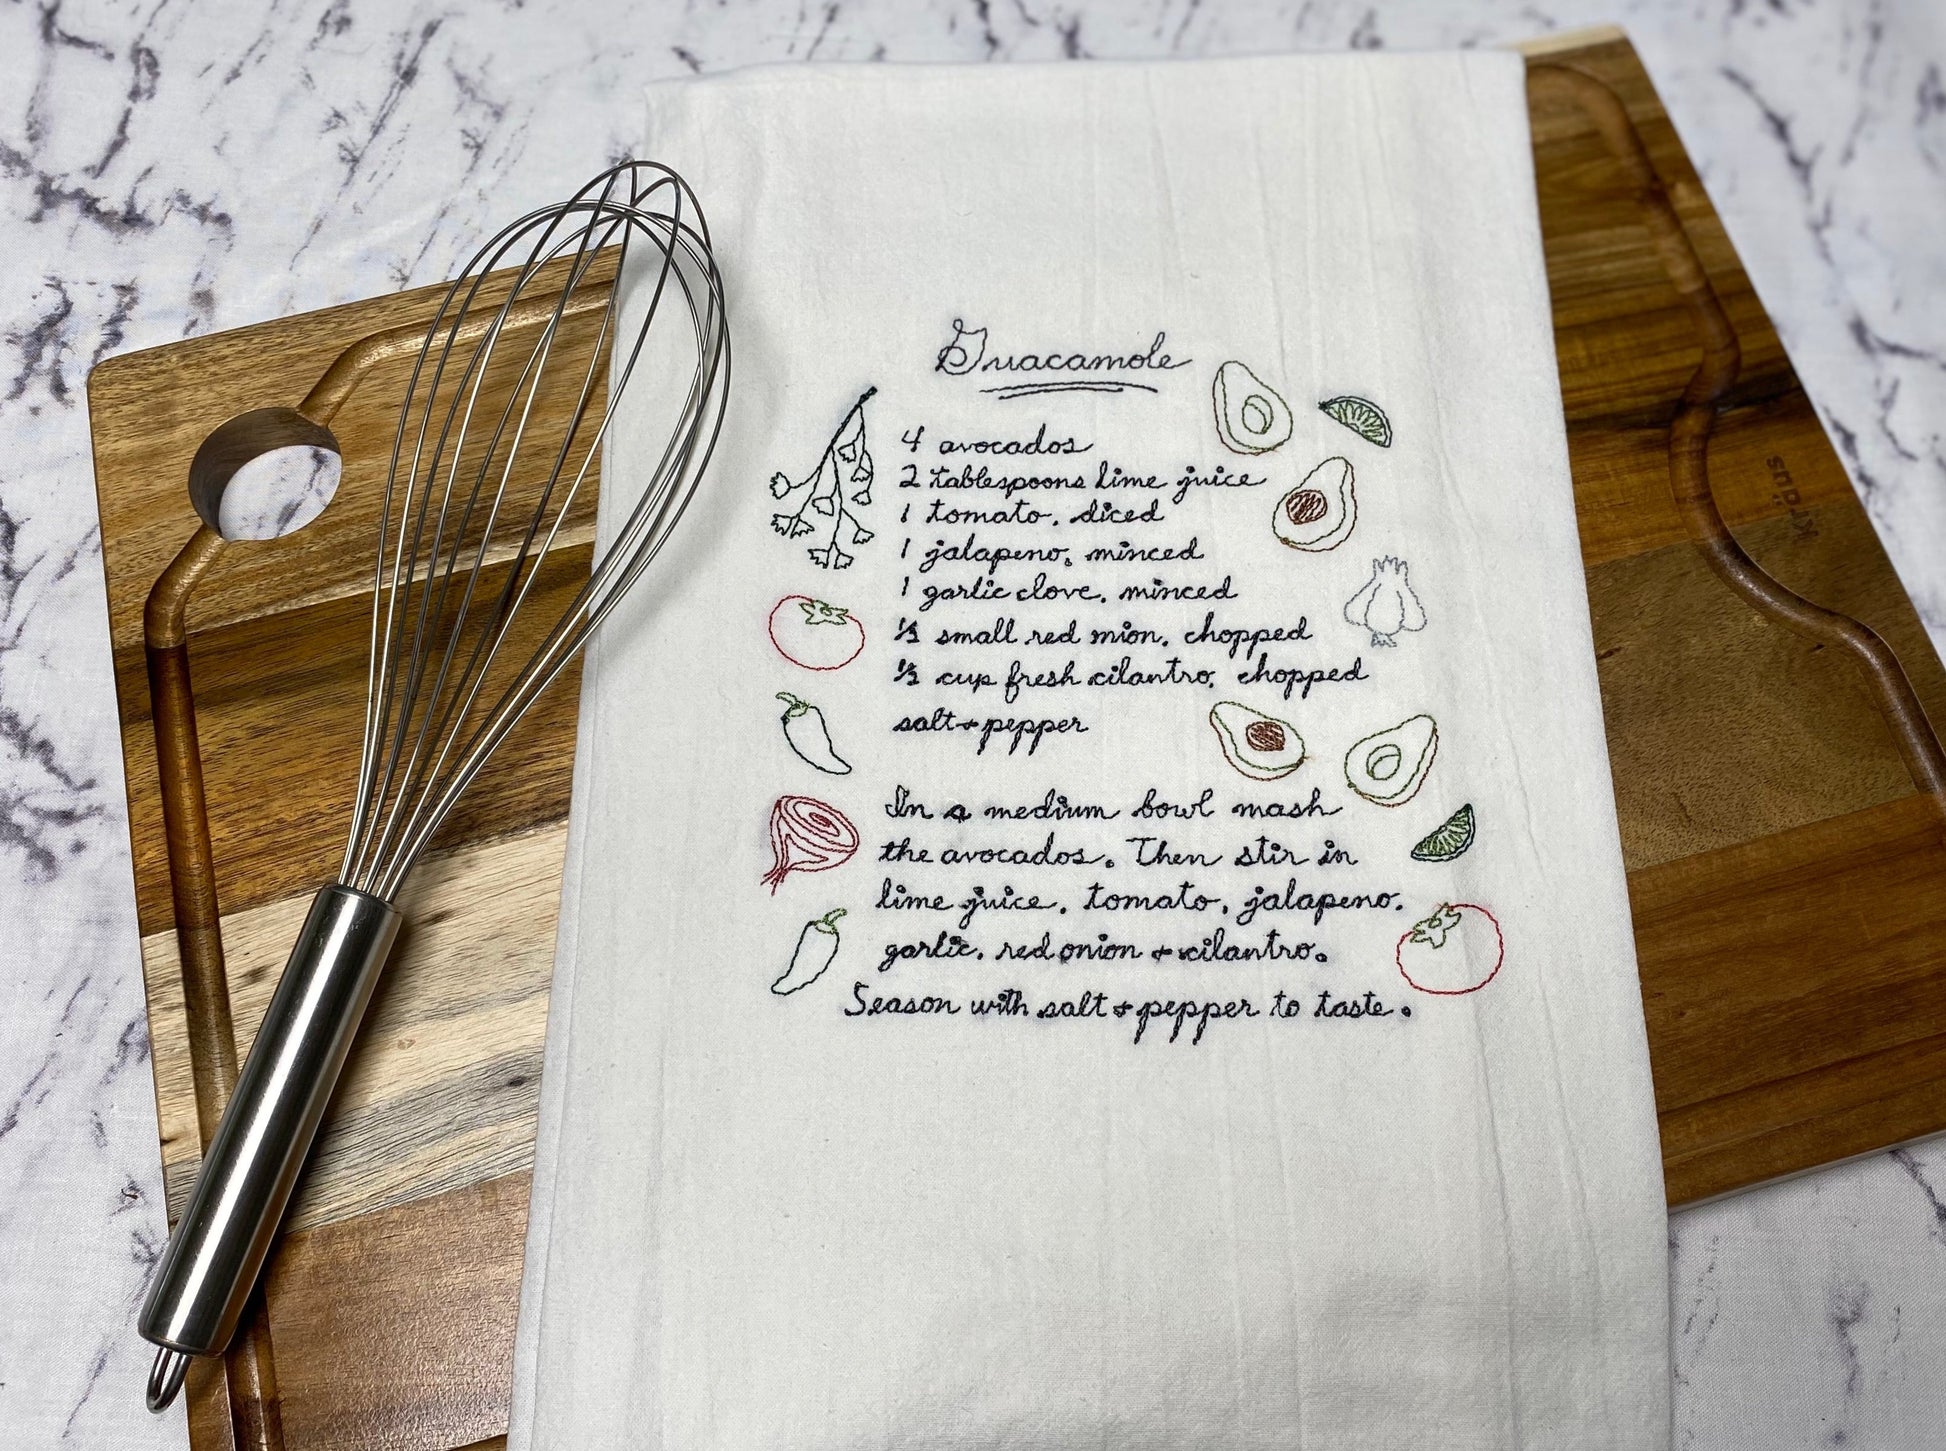 Guacamole
4 avocados
2 tablespoons lime juice
1 tomato, diced
1 jalapeno, minced
1 garlic clove, minced
½ small red onion, chopped
½ cup fresh cilantro, chopped
salt + pepper
In a medium bowl mash
the avocados. Then stir in
lime juice, tomato, jalapeno,
garlic, red onion + cilantro.
Season with salt + pepper to taste.
Kräus